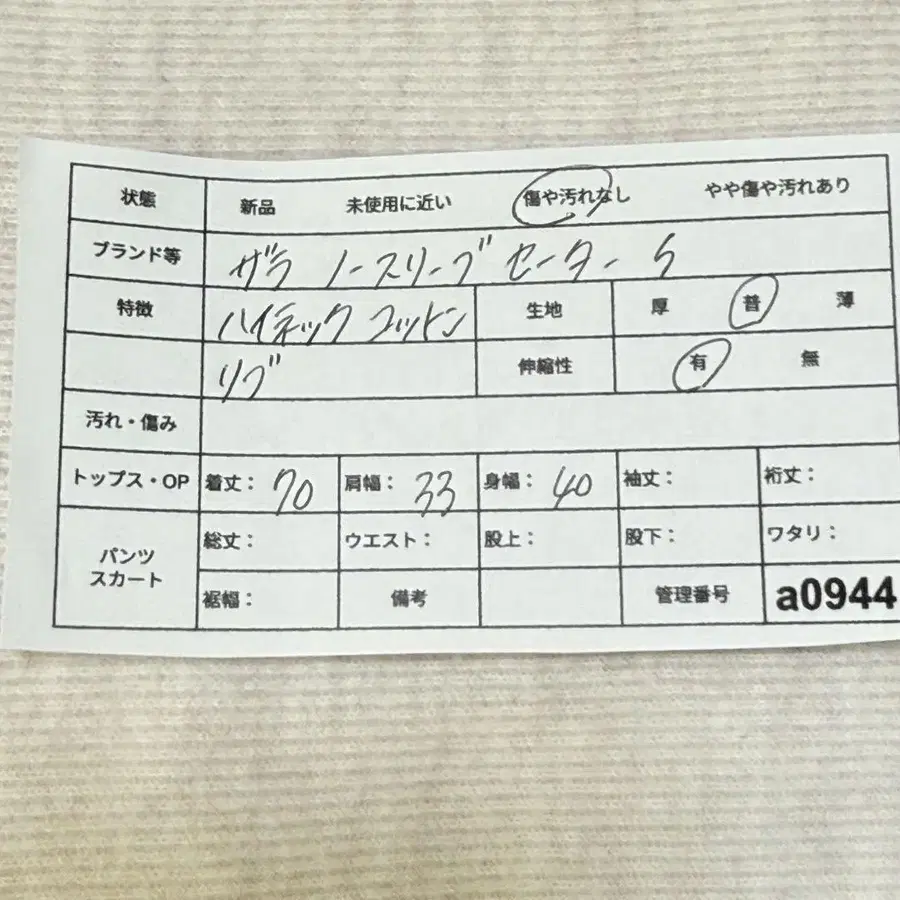 状態 新品 未使用に近い 傷や汚れなし やや傷や汚れあり
ブランド等 ザラ ノースリーブ セーター S
特徴 ハイネック コットン 生地 厚 普 薄
リブ 伸縮性 有 無
汚れ・傷み
トップス・OP 着丈: 70 肩幅: 33 身幅: 40 袖丈: 裄丈:
パンツ スカート 総丈: ウエスト: 股上: 股下: ワタリ:
裾幅: 備考 管理番号 a0944